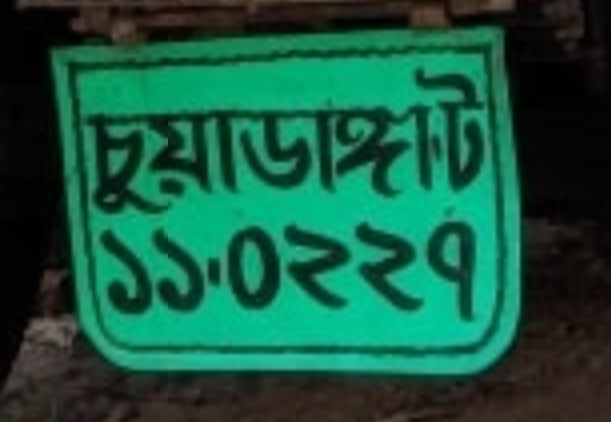 চুয়াডাঙ্গা-ট
১১-০২২৭